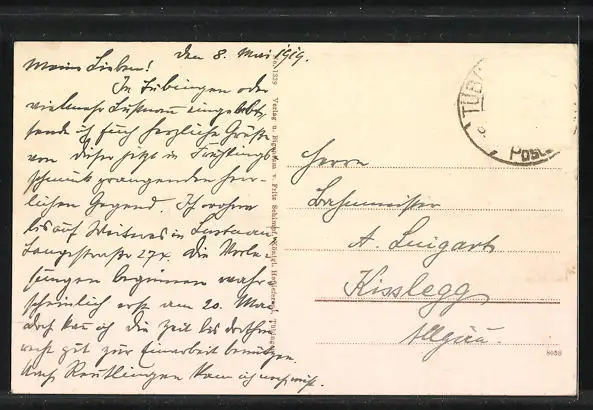 den 8. Mai 1919.
Meine Lieben!
In Tübingen oder
vielmehr Lustnau eingelebt,
sende ich Euch herzliche Grüße
von dieser jetzt in Frühlings
schmuck prangenden herr-
lichen Gegend. Ich wohne
bis auf Weiteres in Lustnau
Langestraße 27 Die Vorle-
sungen beginnen wahr-
scheinlich erst am 20. Mai
doch kan ich die Zeit bis dorthin
recht gut zur Einarbeit benützen.
Nach Reutlingen kam ich noch nicht.
No. 1339 Verlag u. Eigentum v. Fritz Schimpf, Königl. Tübingen
TÜB
Post
Herrn
Bahnmeister
A. Luigart
Kisslegg
Allgäu.
8038